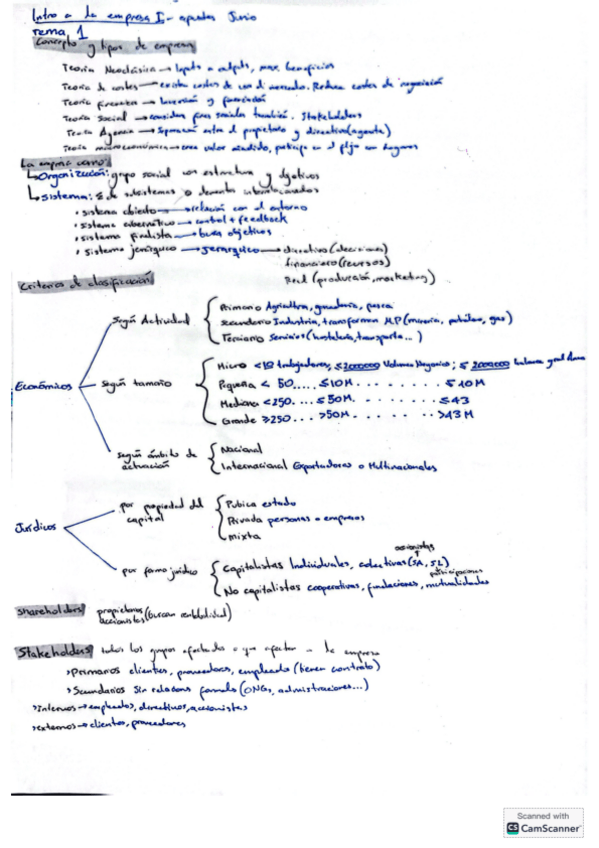 Intro a la empresa I - apuntes Junio
Tema 1
Concepto y tipos de empresa
Teoría Neoclásica → Inputs a outputs, max. beneficios
Teoría de costes → existen costes de uso del mercado. Reduce costes de negociación
Teoría financiera → Inversión y financiación
Teoría Social → considera fines sociales también. Stakeholders
Teoría Agencia → Separación entre el propietario y directivo (agente)
Teoría microeconómica → crea valor añadido, participa en el flujo con hogares
La empresa como:
Organización: grupo social con estructura y objetivos
Sistema: de subsistemas o elementos interrelacionados
• sistema abierto → relación con el entorno
• sistema cibernético → control + feedback
• sistema finalista → busca objetivos
• sistema jerárquico → Jerárquico → directivo (decisiones)
financiero (recursos)
Real (producción, marketing)
Criterios de clasificación
Económicos
según Actividad
Primario Agricultura, ganadería, pesca
Secundario Industria, transforman M.P (minería, petróleo, gas)
Terciario Servicios (hostelería, transporte...)
según tamaño
Micro <10 trabajadores, ≤2000000 Volumen Negocios; ≤ 2000000 balance
Pequeña < 50.... ≤10M . . . . . . . . ≤10M
Mediana <250.... ≤50M. . . . . . . . ≤43
Grande ≥250... >50M. . . . . . . >43M
según ámbito de actuación
Nacional
Internacional Exportadoras o Multinacionales
Jurídicos
por propiedad del capital
Pública estado
Privada personas o empresas
Mixta
por forma jurídica
accionistas
Capitalistas Individuales, colectivas (SA, SL)
participaciones
No capitalistas cooperativas, fundaciones, mutualidades
Shareholders propietarios accionistas (buscan rentabilidad)
Stakeholders todos los grupos afectados o que afectan a la empresa
>Primarios clientes, proveedores, empleados (tienen contrato)
>Secundarios Sin relaciones formales (ONGs, administraciones...)
>Internos → empleados, directivos, accionistas
>externos → clientes, proveedores
Scanned with
CS CamScanner